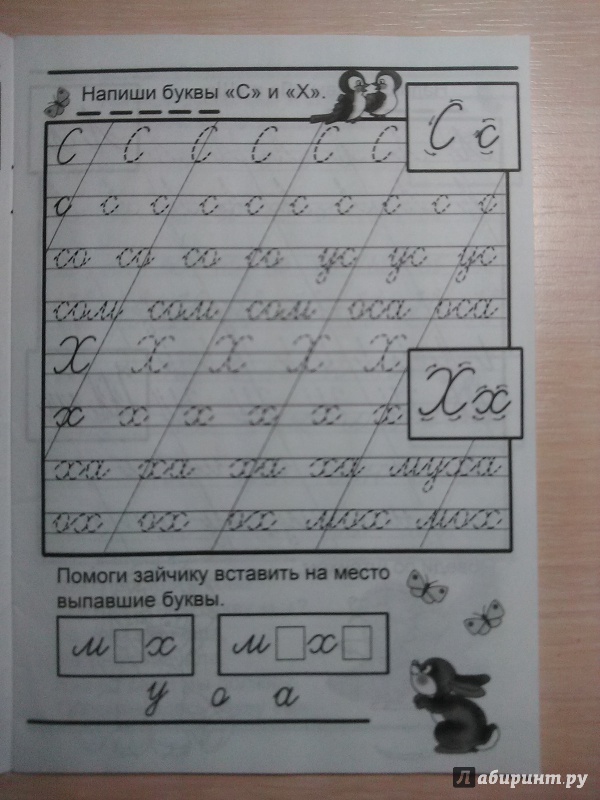 Напиши буквы «С» и «Х».
С С С С С С
С с
с с с с с с с с с с
со со со со ус ус ус
сом сом сом оса оса
Х Х Х Х Х
Х х
х х х х х х
ха ха ха ха муха
ох ох ох мох мох
Помоги зайчику вставить на место
выпавшие буквы.
м□х м□х□
у о а
Лабиринт.ру